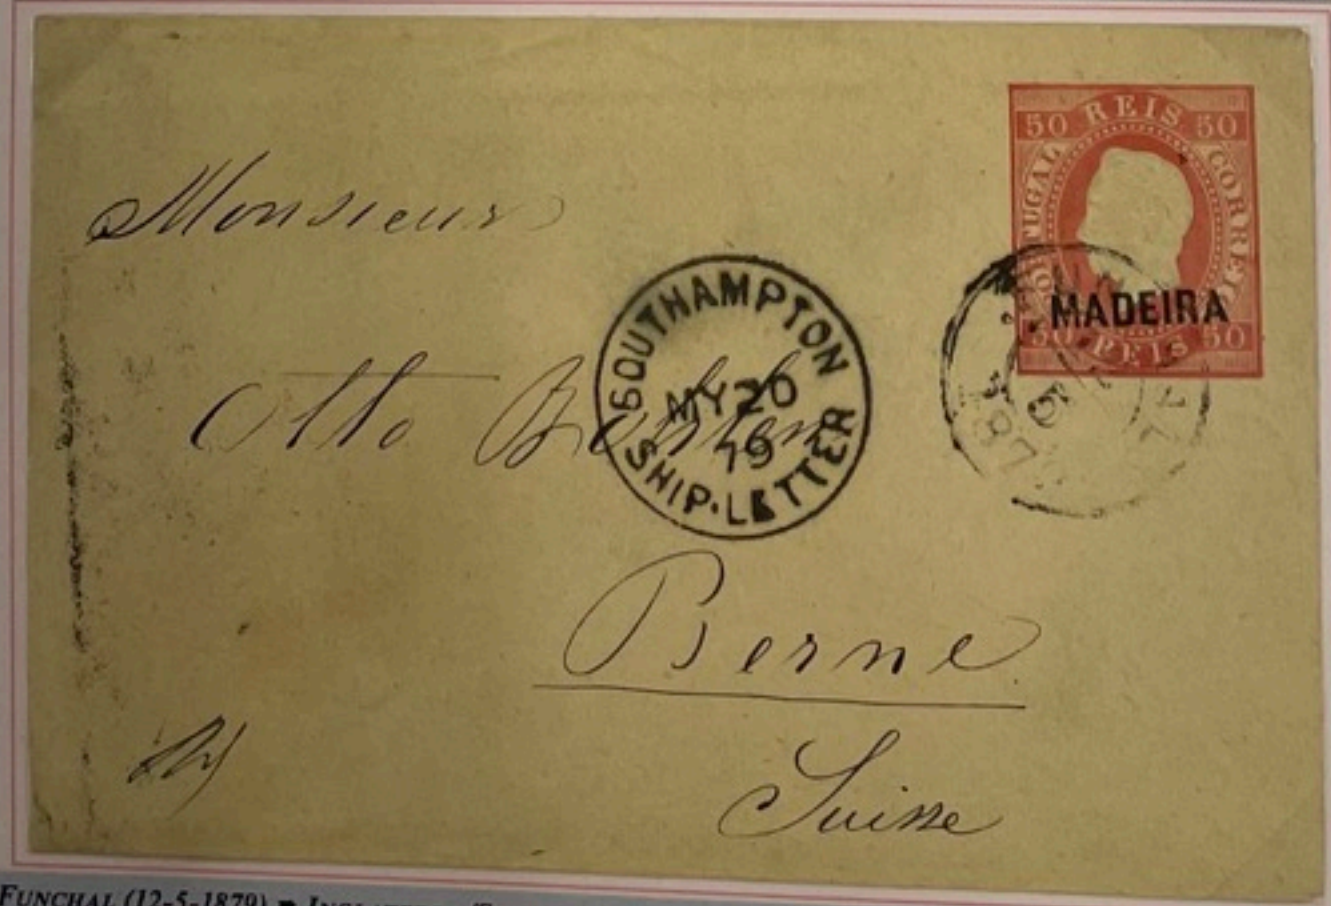 50 REIS 50
PORTUGAL
CORREIO
MADEIRA
50 REIS 50
Monsieur
SOUTHAMPTON
MY 20
79
SHIP-LETTER
Otto
Berne
Suisse
FUNCHAL (12-5-1879)